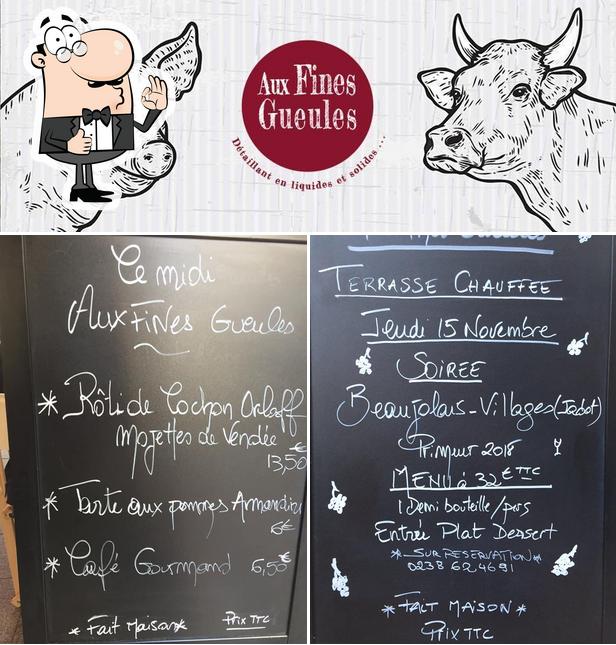 Aux Fines
Gueules
Détaillant en liquides et solides ...
Ce midi
Aux Fines Gueules
* Rôti de Cochon Orloff
Mojettes de Vendée
13,50€
* Tarte aux pommes Amandine
6€
* Café Gourmand 6,50€
* Fait Maison* Prix TTC
TERRASSE CHAUFFEE
Jeudi 15 Novembre
SOIREE
Beaujolais-Villages (Jabot)
Primeur 2018
MENU à 32€ TTC
1 Demi bouteille/pers
Entrée Plat Dessert
*SUR RESERVATION*
0238 624691
*FAIT MAISON*
Prix TTC